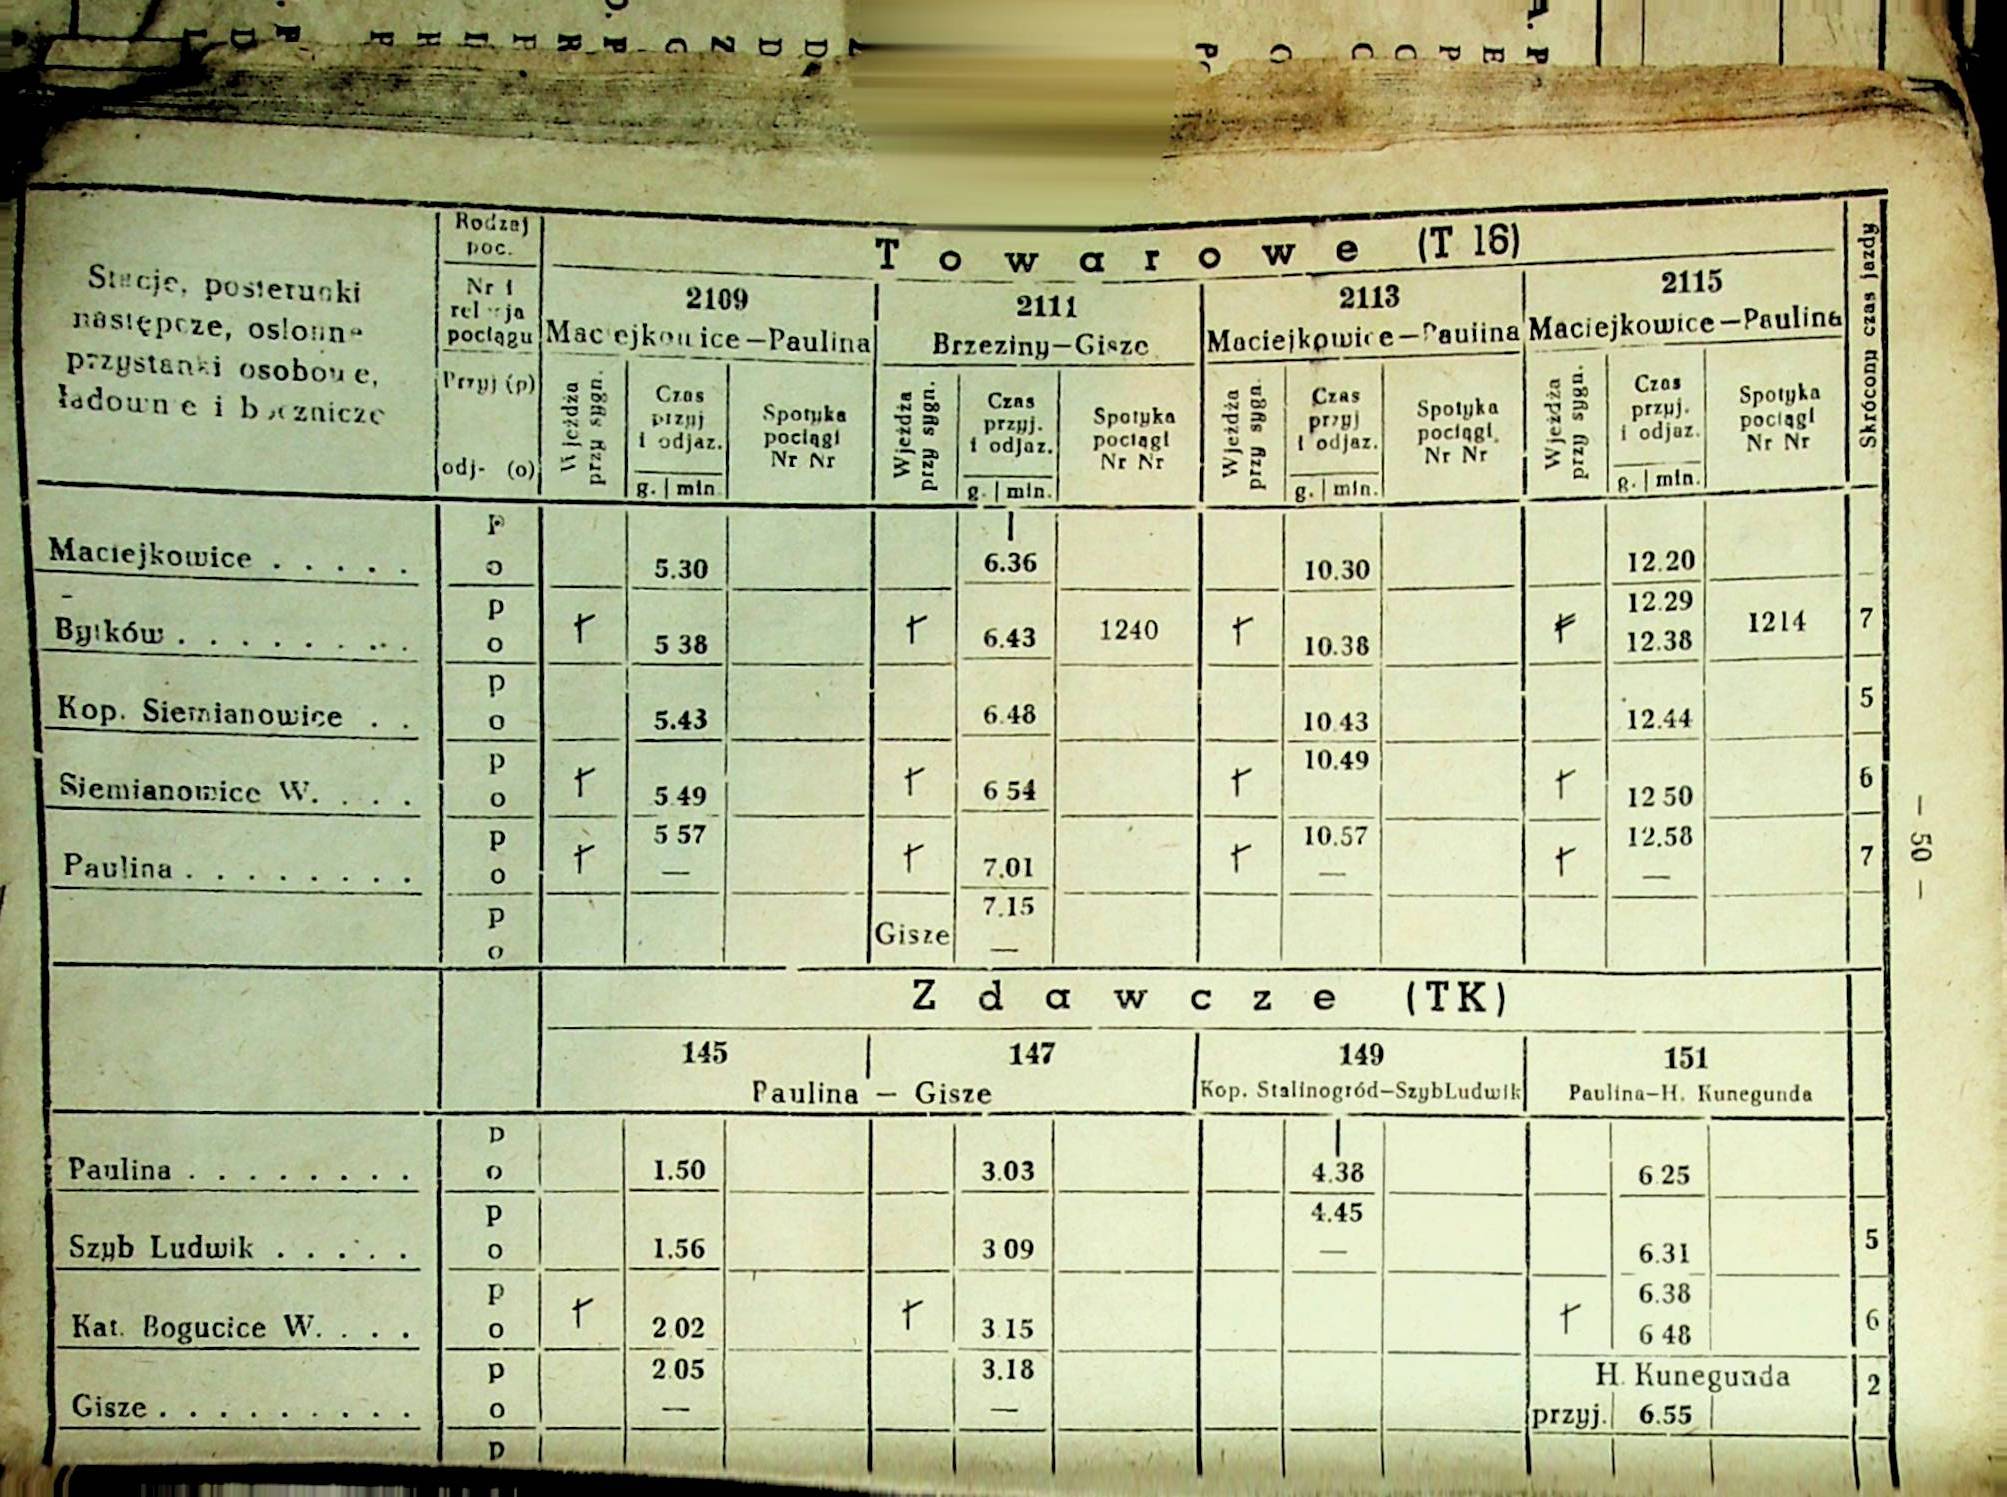 Rodzaj
poc.
Towarowe (T 16)
Stacje, posterunki
następcze, osłonne
przystanki osobowe,
ładownie i bocznice
Nr i
relacja
pociągu
Przyj (p)
odj- (o)
2109
Maciejkowice—Paulina
2111
Brzeziny—Gisze
2113
Maciejkowice—Paulina
2115
Maciejkowice—Paulina
Skrócony czas jazdy
Wjeżdża przy sygn.
Czas przyj i odjaz.
g. | min.
Spotyka pociągi Nr Nr
Wjeżdża przy sygn.
Czas przyj. i odjaz.
g. | min.
Spotyka pociągi Nr Nr
Wjeżdża przy sygn.
Czas przyj i odjaz.
g. | min.
Spotyka pociągi Nr Nr
Wjeżdża przy sygn.
Czas przyj. i odjaz.
g. | min.
Spotyka pociągi Nr Nr
p
Maciejkowice . . . . . o 5.30 6.36 10.30 12.20
p 12.29
Bytków . . . . . . . . o 5 38 6.43 1240 10.38 12.38 1214 7
p
Kop. Siemianowice . . o 5.43 6.48 10.43 12.44 5
p 10.49
Siemianowice W. . . . o 5 49 6 54 12 50 6
p 5 57 10.57 12.58
Paulina . . . . . . . . o — 7.01 — — 7
p 7.15
Gisze
o —
— 50 —
Zdawcze (TK)
145 147 149 151
Paulina — Gisze Kop. Stalinogród—Szyb Ludwik Paulina—H. Kunegunda
p
Paulina . . . . . . . . o 1.50 3.03 4.38 6 25
p 4.45
Szyb Ludwik . . . . . o 1.56 3 09 — 6.31 5
p 6.38
Kat. Bogucice W. . . . o 2 02 3 15 6 48 6
p 2 05 3.18 H. Kunegunda
Gisze . . . . . . . . . . o — — przyj. 6.55 2
p